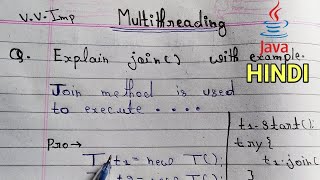 V.V.Imp
Multithreading
Java
HINDI
Q. Explain join() with example.
Join method is used
to execute ....
Pro→
T t1 = new T();
t1.start();
try{
t1.join(